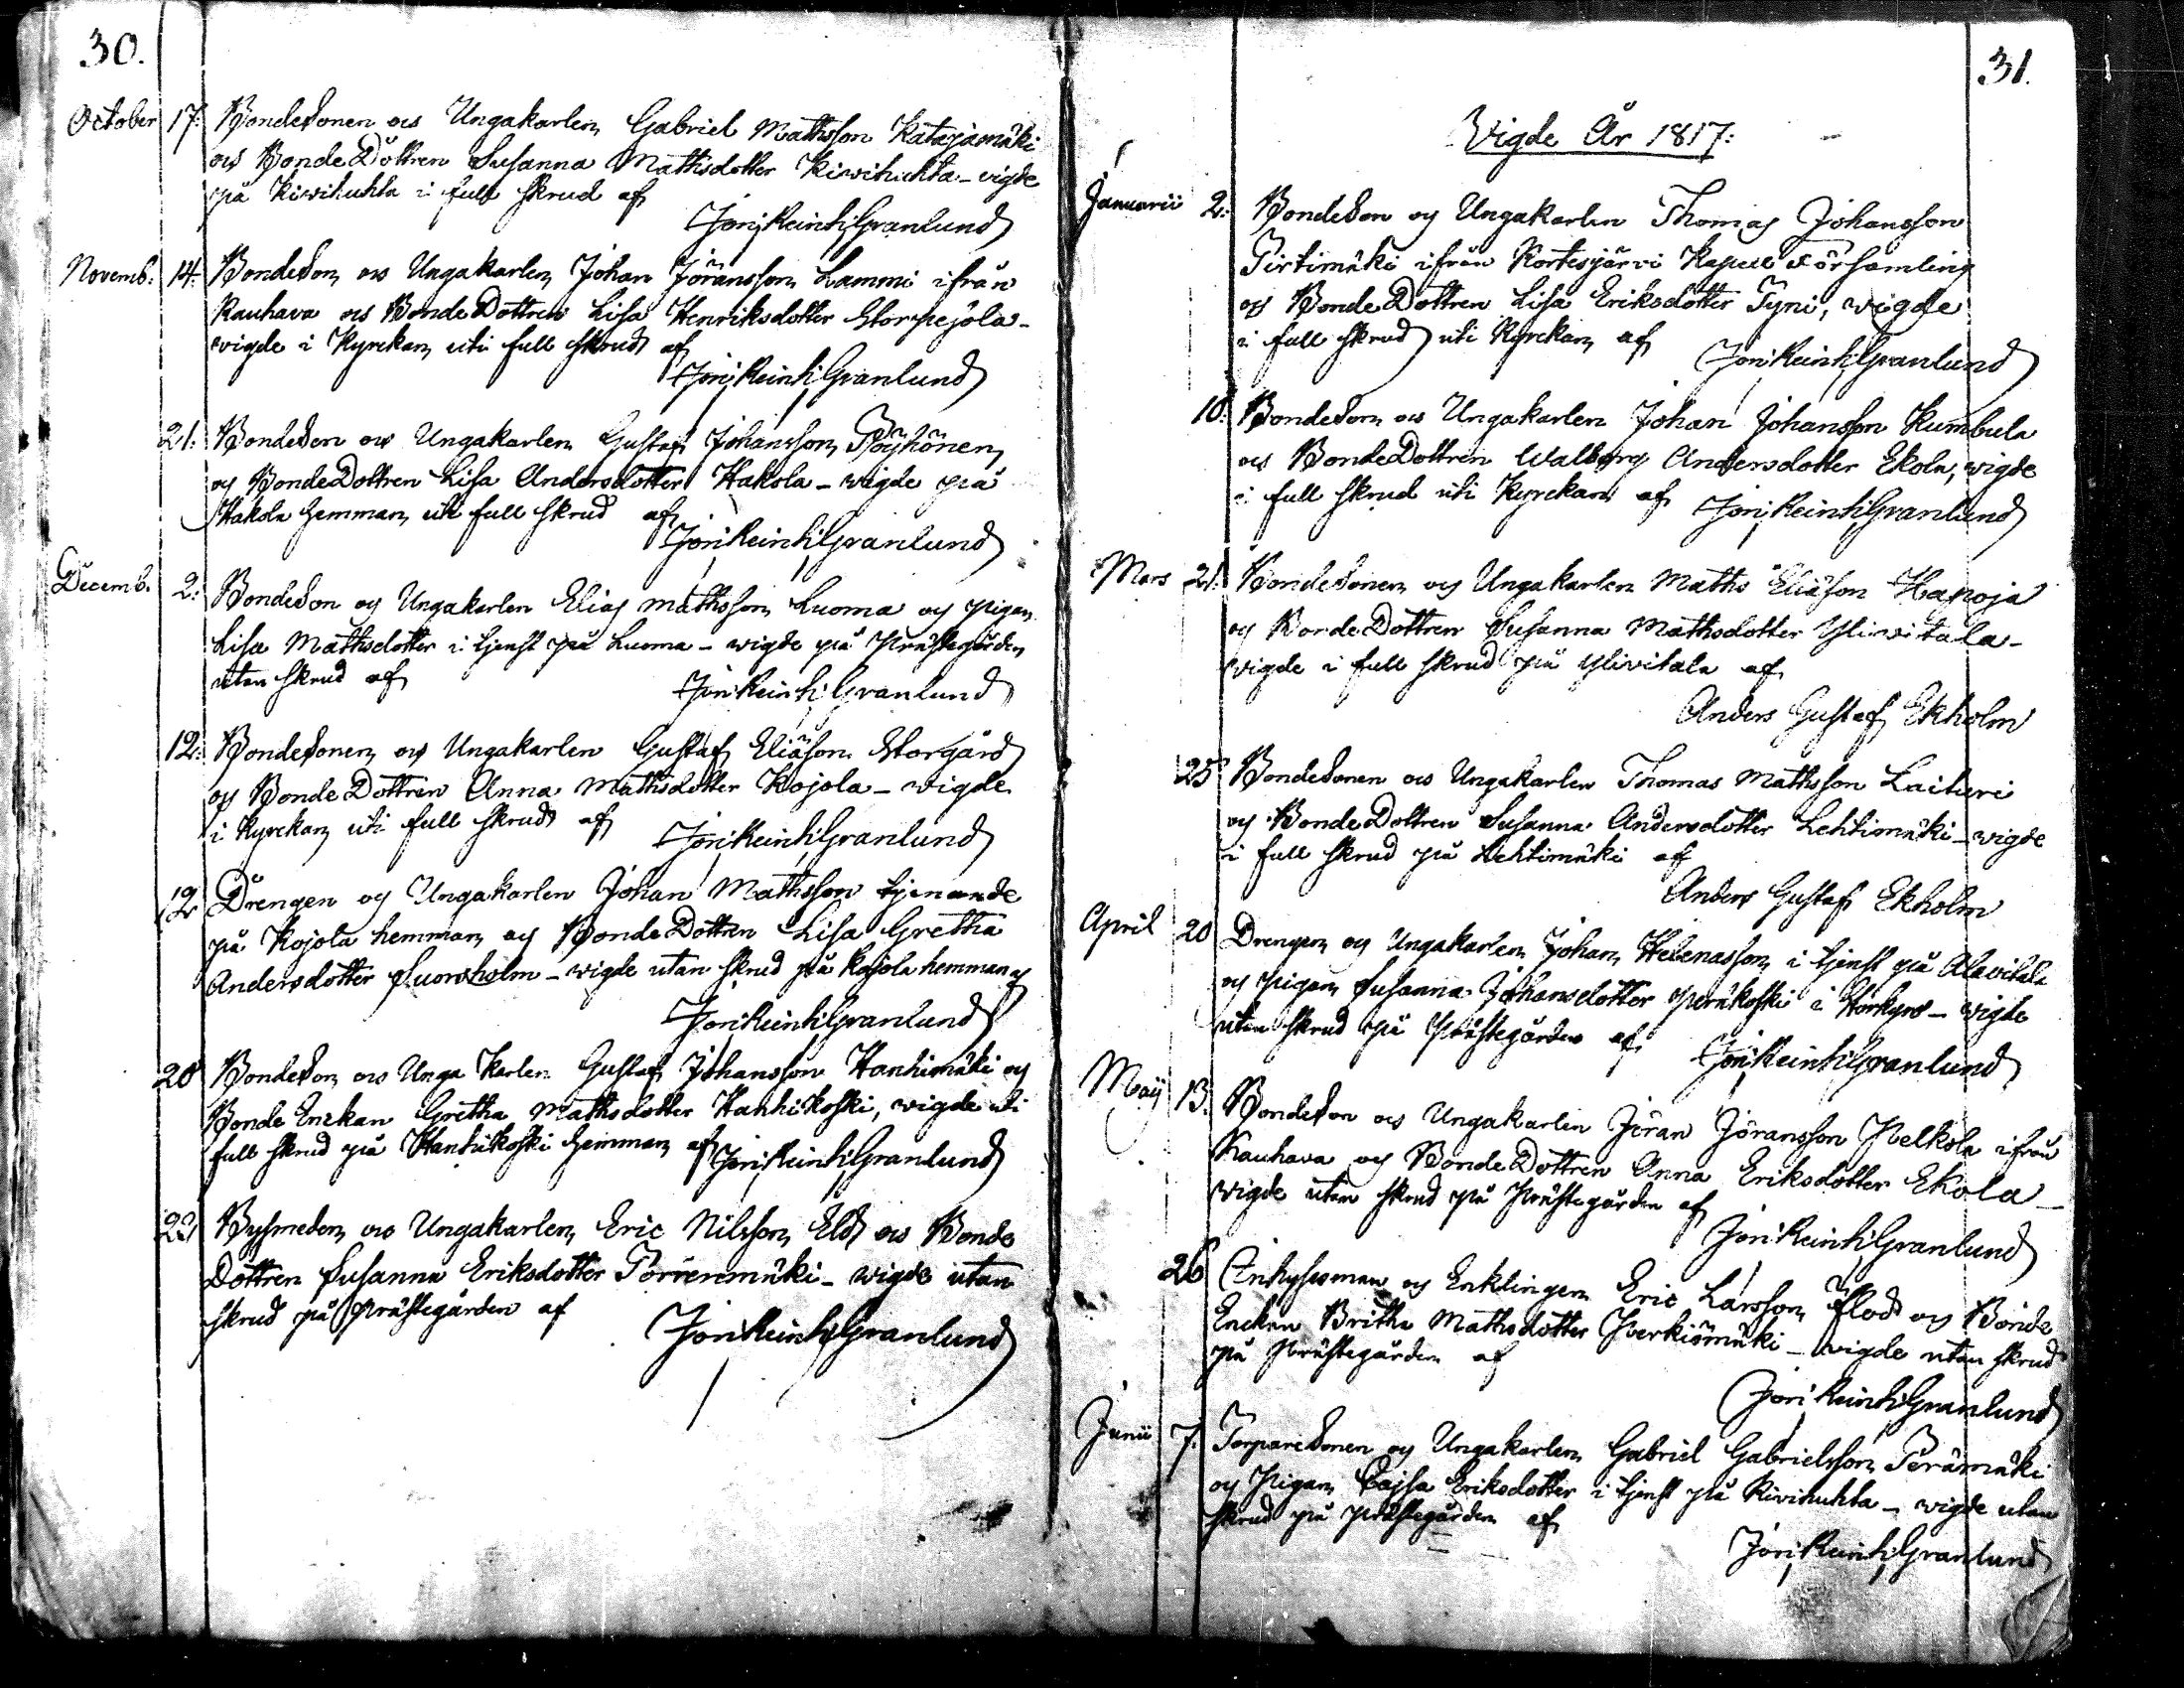 30.
October 17: BondeSonen ocs Ungakarlen Gabriel Mathsson Katajamäki
ocs BondeDottren Susanna Mathsdotter Kiwihuhta - vigde
på Kiwihuhta i full skrud af
Jöri Reinh Granlund
Novemb: 14: BondeSon ocs Ungakarlen Johan Jöransson Lammi ifrån
Kauhava ocs BondeDottren Lisa Henriksdotter Storpejola -
vigde i Kyrckan uti full skrud af
Jöri Reinh Granlund
21: BondeSon ocs Ungakarlen Gustaf Johansson Pöyhönen
og BondeDottren Lisa Andersdotter Hakola - vigde på
Hakola hemman uti full skrud af
Jöri Reinh Granlund
Decemb. 2: BondeSon og Ungakarlen Elias Mathsson Luoma og pigan
Lisa Mathsdotter i tjenst på Luoma - wigde på Prästegården
utan skrud af
Jöri Reinh Granlund
12: BondeSonen ocs Ungakarlen Gustaf Eliäson Storgård
og BondeDottren Anna Mathsdotter Kojola - vigde
i Kyrckan uti full skrud af
Jöri Reinh Granlund
12 Drengen og Ungakarlen Johan Mathsson tjenande
på Kojola hemman og BondeDottren Lisa Gretha
Andersdotter - wigde utan skrud på Kojola hemman af
Jöri Reinh Granlund
20 BondeSon ocs Unga Karlen Gustaf Johansson Hanhimäki og
Bonde Enckan Gretha Mathsdotter Hanhikoski, wigde uti
full skrud på Hanhikoski hemman af Jöri Reinh Granlund
22 Bysmeden ocs Ungakarlen Eric Nilsson Eld ocs Bonde
Dottren Susanna Eriksdotter Törrenmäki - wigde utan
skrud på Prästegården af
Jöri Reinh Granlund
31.
Vigde År 1817:
Januarii 2: BondeSon og Ungakarlen Thomas Johansson
Tirtimäki ifrån Kortesjärvi Kapell Församling
og BondeDottren Lisa Eriksdotter Tyni, wigde
i full skrud uti Kyrckan af
Jöri Reinh Granlund
10: BondeSon ocs Ungakarlen Johan Johansson Kumbula
ocs BondeDottren Walborg Andersdotter Ekola, wigde
i full skrud uti Kyrckan af
Jöri Reinh Granlund
Mars 21: BondeSonen og Ungakarlen Maths Eliäson Hapoja
og BondeDottren Susanna Mathsdotter Yliwitala -
vigde i full skrud på Ylivitala af
Anders Gustaf Ekholm
25 BondeSonen ocs Ungakarlen Thomas Mathsson Laituri
og BondeDottren Susanna Andersdotter Lehtimäki - wigde
i full skrud på Lehtimäki af
Anders Gustaf Ekholm
April 20 Drengen og Ungakarlen Johan Helenasson i tjenst på Alavitala
og pigan Susanna Johansdotter Peräkoski i Storkyro - wigde
utan skrud på Prästegården af
Jöri Reinh Granlund
Maij 13. BondeSon ocs Ungakarlen Jöran Jöransson Pelkola ifrån
Kauhava og BondeDottren Anna Eriksdotter Ekola -
vigde utan skrud på Prästegården af
Jöri Reinh Granlund
26 og Enklingen Eric Larsson Flod og Bonde
Enckan Britha Mathsdotter Perkiömäki - vigde utan skrud
på Prästegården af
Jöri Reinh Granlund
Junii 7. TorpareSonen og Ungakarlen Gabriel Gabrielsson Perämäki
og Pigan Cajsa Eriksdotter i tjenst på Kivihuhta - wigde utan
skrud på prästegården af
Jöri Reinh Granlund